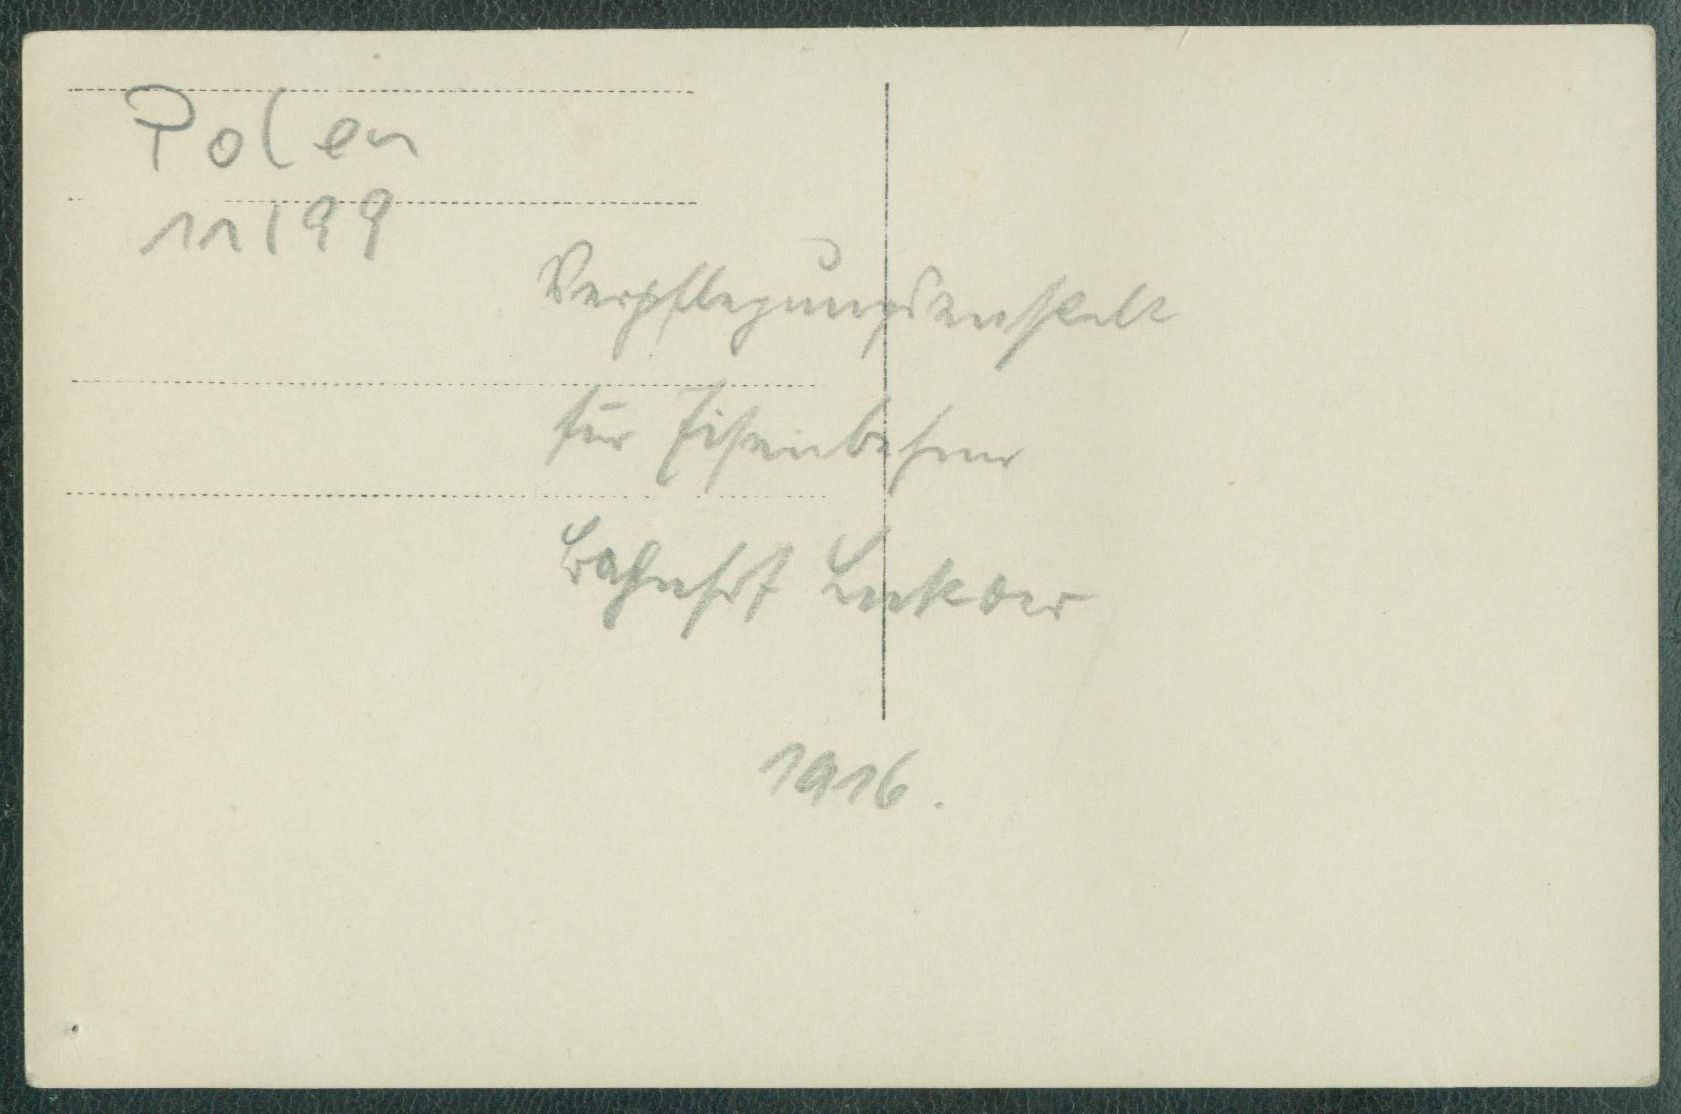 Polen
11199
Verpflegungsanstalt
für Eisenbahner
Bahnhof
1916.